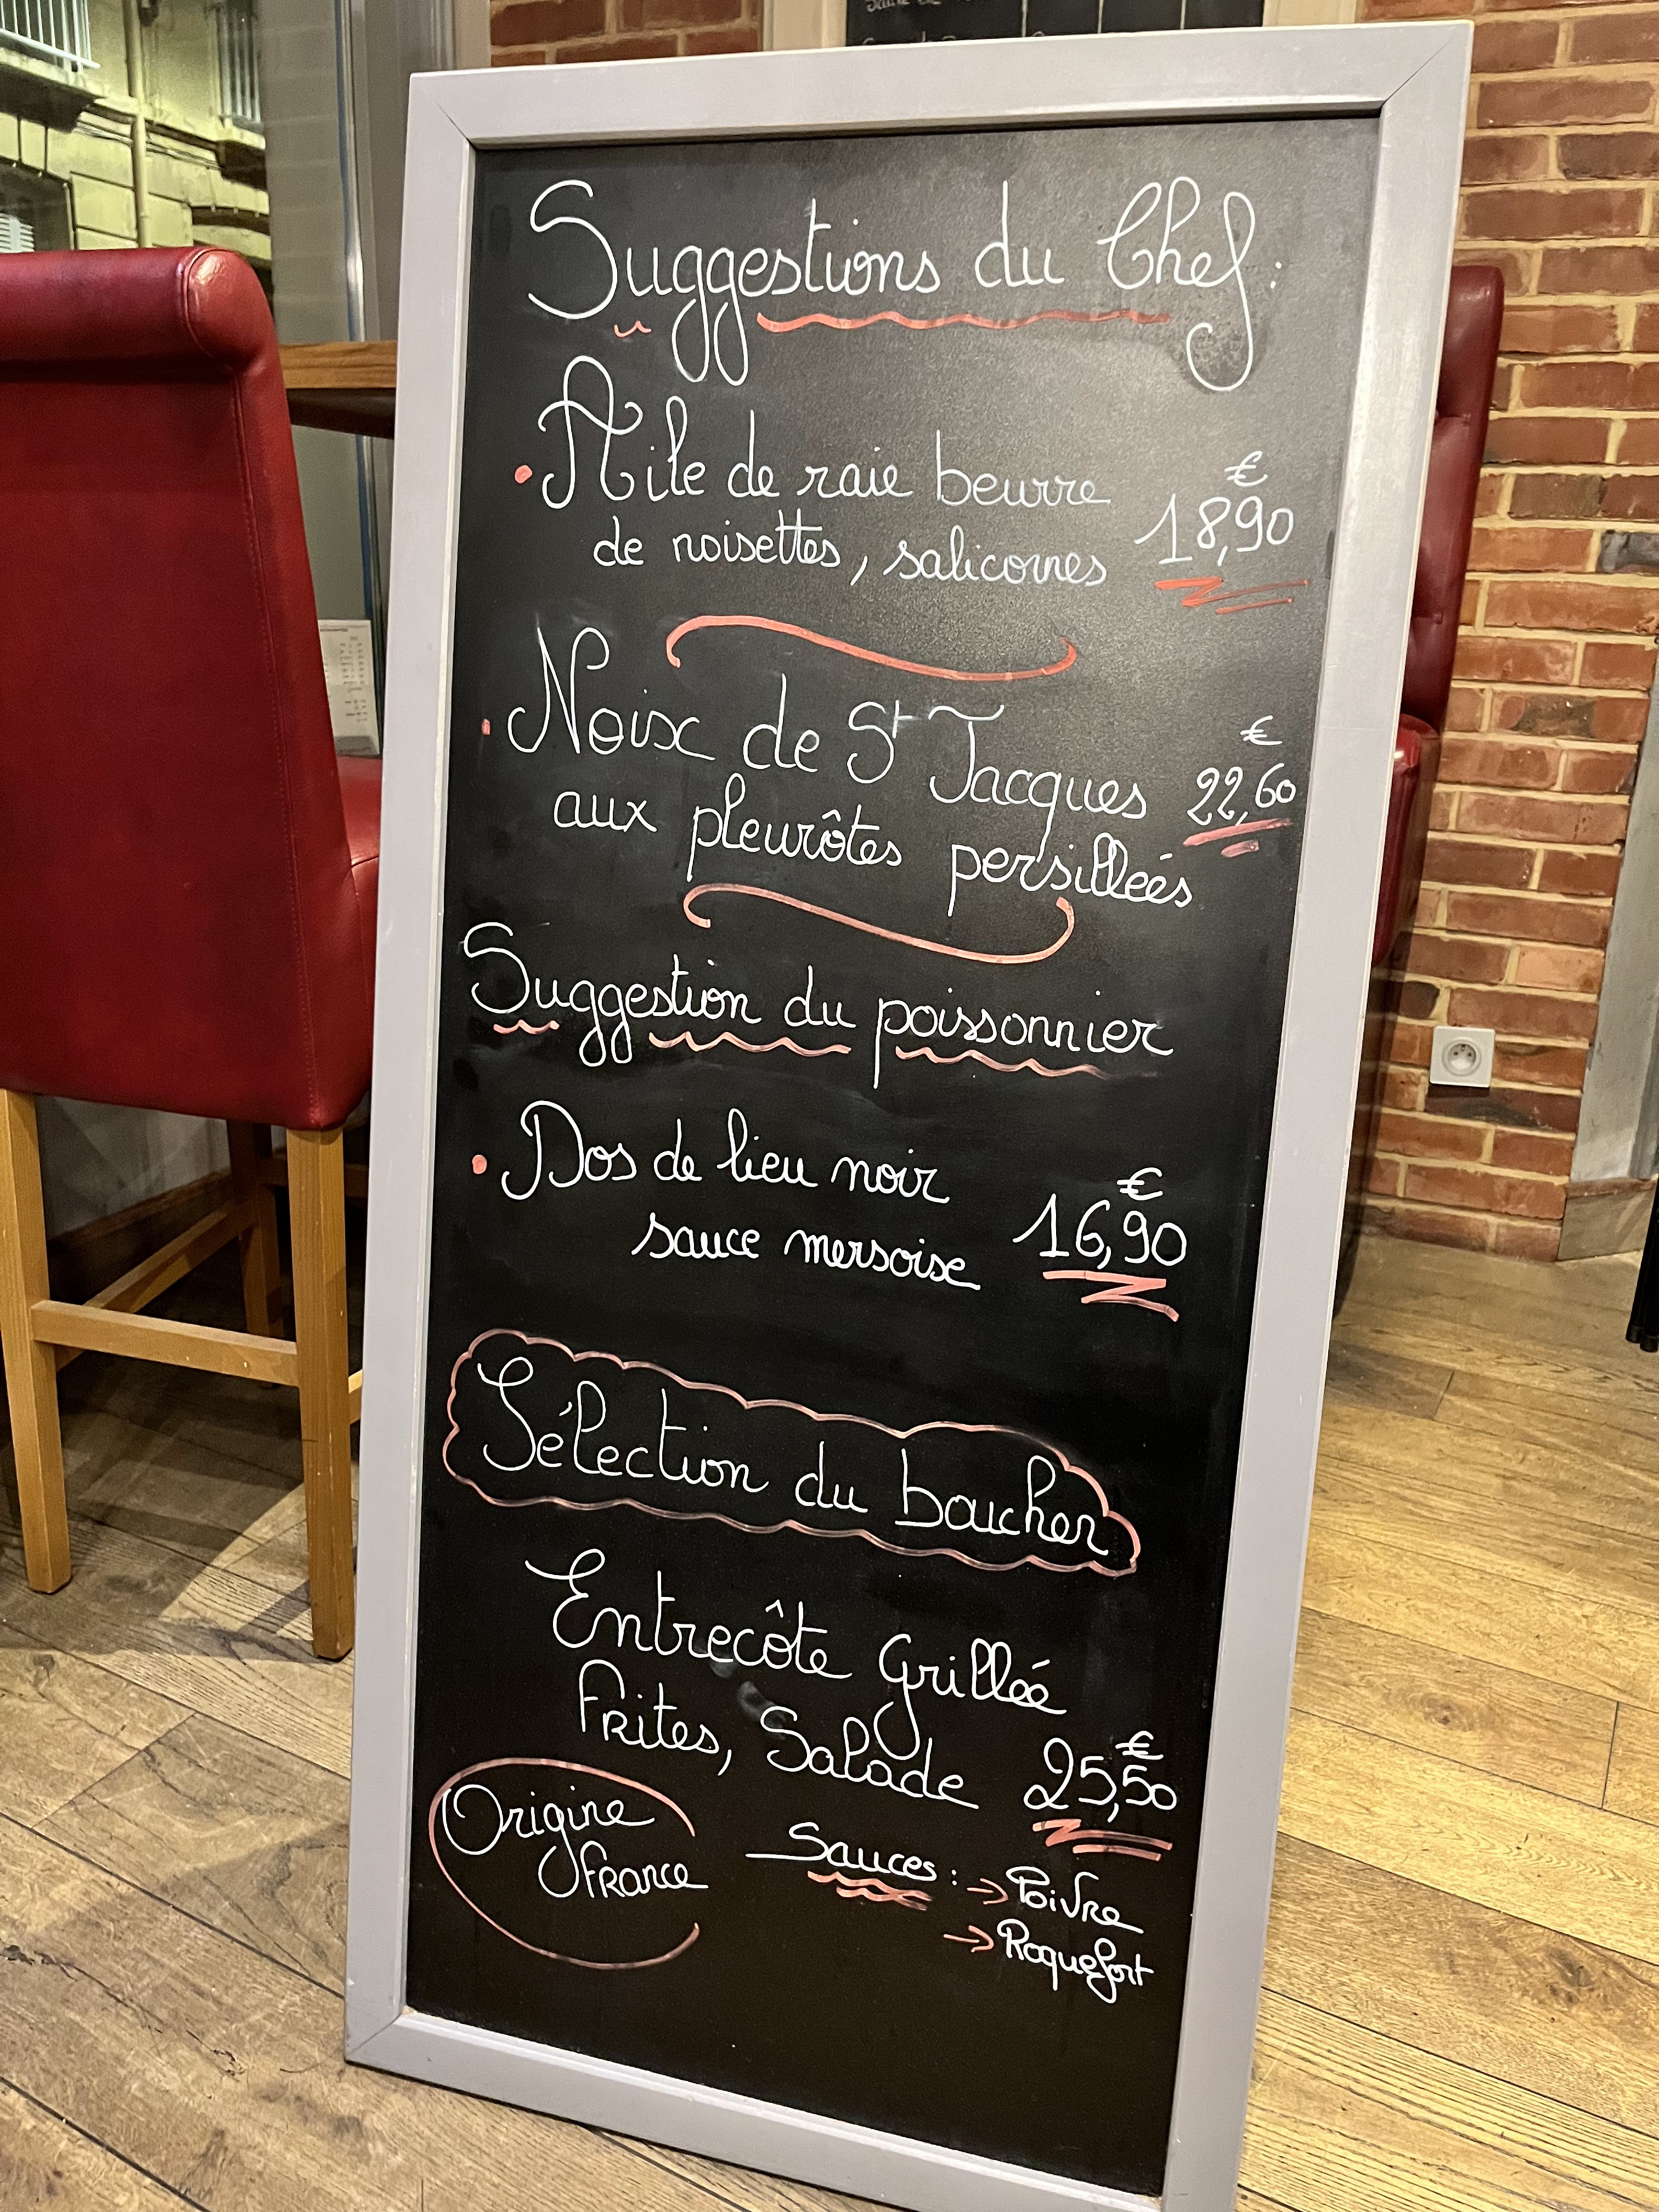 Suggestions du Chef:
• Aile de raie beurre
de noisettes, salicornes 18,90 €
• Noix de St Jacques 22,60 €
aux pleurôtes persillées
Suggestion du poissonnier
• Dos de lieu noir
sauce mersoise 16,90 €
Sélection du boucher
Entrecôte Grillée
Frites, Salade 25,50 €
Origine
France
Sauces: → Poivre
→ Roquefort